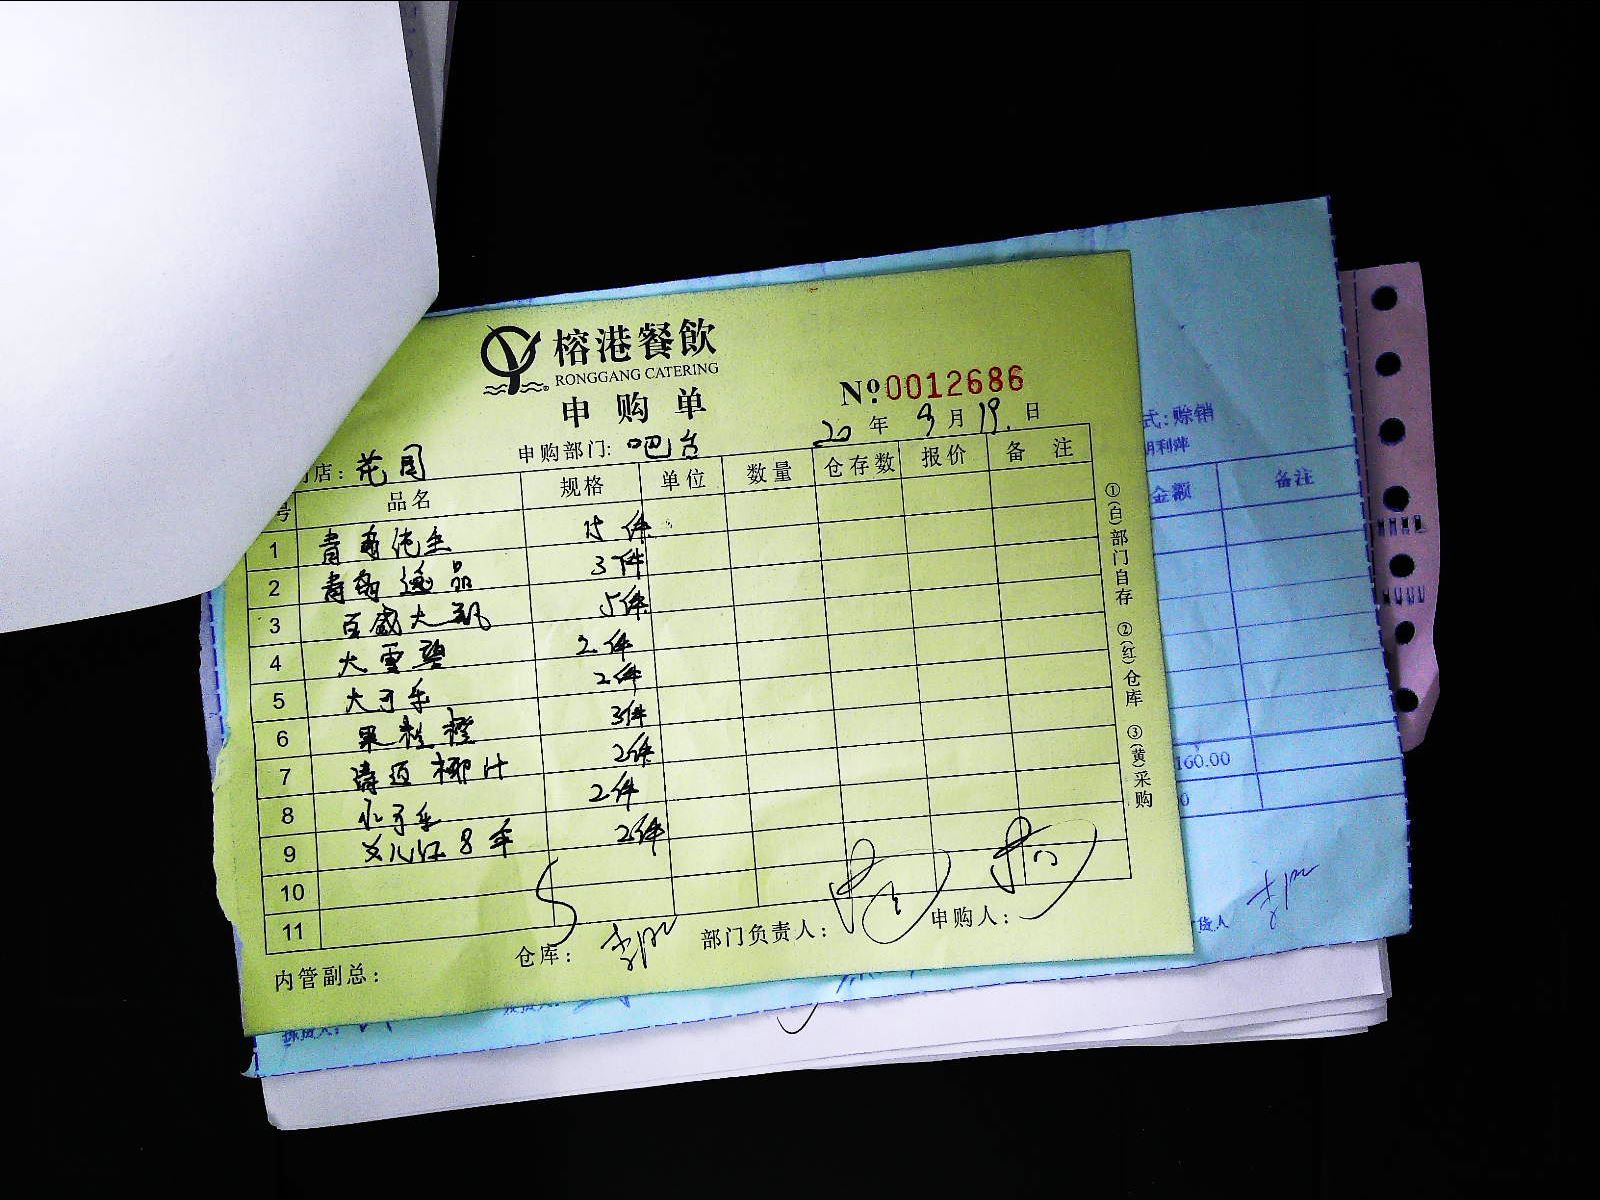 榕港餐飲
RONGGANG CATERING
申购单
№:0012686
店: 花园 申购部门: 吧台 20年9月19日
号 品名 规格 单位 数量 仓存数 报价 备注
1 青岛纯生 15件
2 青岛逸品 3件
3 百威大瓶 5件
4 大雪碧 2件
5 大可乐 2件
6 果粒橙 3件
7 椰汁 2件
8 可乐 2件
9 女儿红8年 2件
10
11
内管副总: 仓库: 部门负责人: 申购人:
①(白)部门自存 ②(红)仓库 ③(黄)采购
式: 赊销
金额 备注
160.00
0
货人